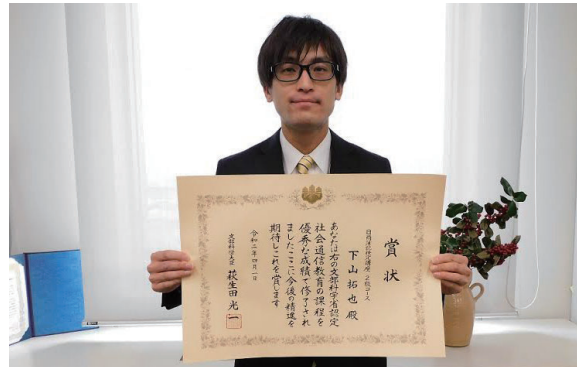 賞状
日商簿記講座 2級コース
下山拓也殿
あなたは右の文部科学省認定
社会通信教育の課程を
優秀な成績で修了され
ましたここに今後の精進を
期待しこれを賞します
令和二年四月一日
文部科学大臣 萩生田光一